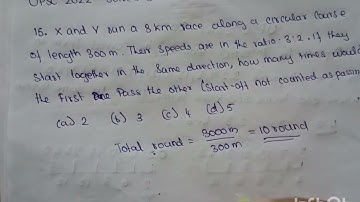 UPSC 2022
15. X and Y run a 3km race along a circular course
of length 300m. Their speeds are in the ratio 3:2. If they
start together in the same direction, how many times would
the first one Pass the other (start-off not counted as passing
(a) 2 (b) 3 (c) 4 (d) 5
Total round = 3000m / 300m = 10 round